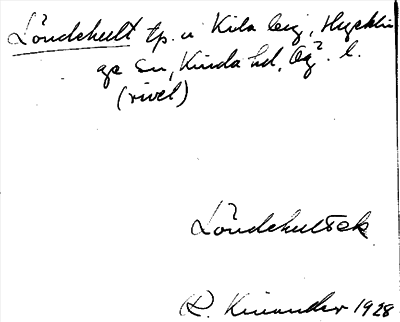 Löndehult tp. u Kila by, Hycklin
ge sn, Kinda hd, Ög. l.
(rivet)
Löndehultsek
R. Kinander 1928